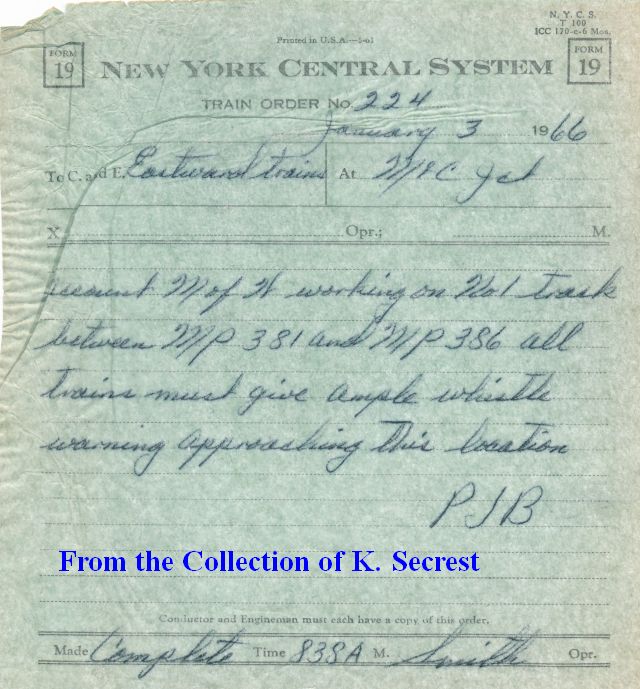 N. Y. C. S.
T 100
ICC 170-c-6 Mos.
Printed in U.S.A.—5-61
FORM
19
NEW YORK CENTRAL SYSTEM
FORM
19
TRAIN ORDER No. 224
January 3 1966
To C. and E. Eastward trains At
X Opr.; M.
account M of W working on No 1 track
between MP 381 and MP 386 all
trains must give ample whistle
warning approaching this location
PJB
From the Collection of K. Secrest
Conductor and Engineman must each have a copy of this order.
Made Complete Time 838A M. Smith Opr.